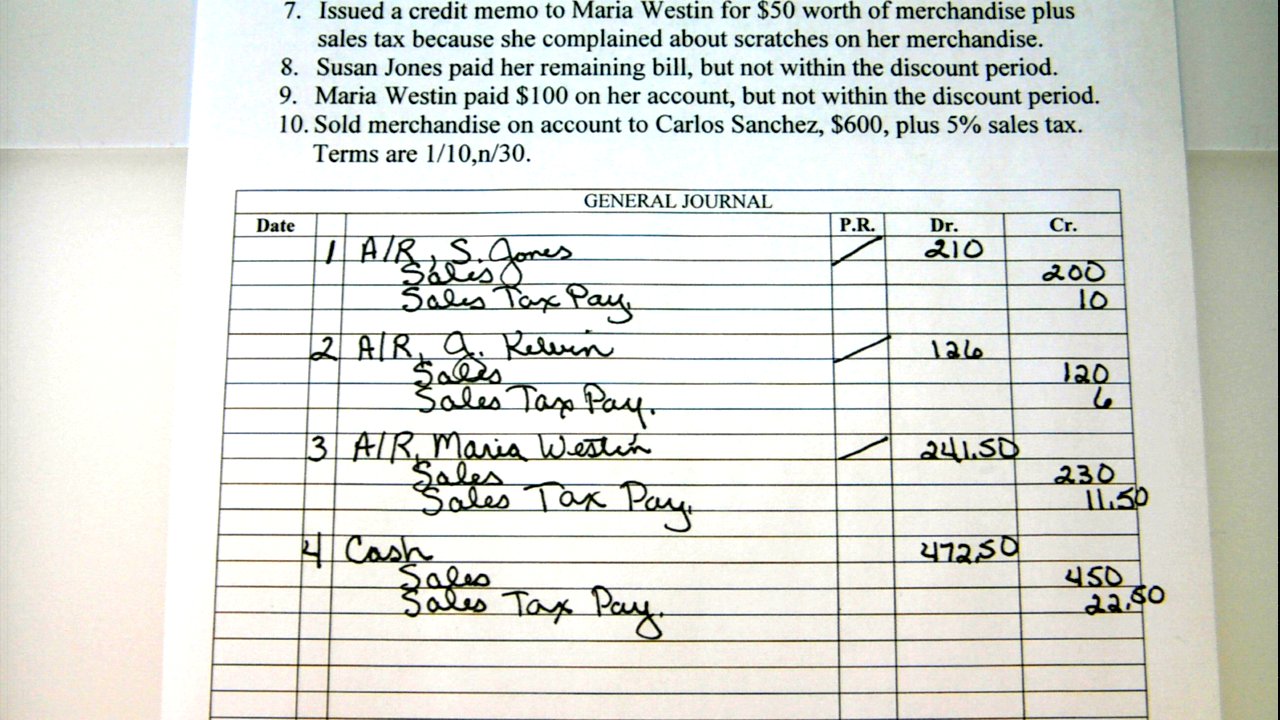 7. Issued a credit memo to Maria Westin for $50 worth of merchandise plus
sales tax because she complained about scratches on her merchandise.
8. Susan Jones paid her remaining bill, but not within the discount period.
9. Maria Westin paid $100 on her account, but not within the discount period.
10. Sold merchandise on account to Carlos Sanchez, $600, plus 5% sales tax.
Terms are 1/10,n/30.
GENERAL JOURNAL
Date P.R. Dr. Cr.
1 A/R, S. Jones 210
Sales 200
Sales Tax Pay. 10
2 A/R, J. Kelvin 126
Sales 120
Sales Tax Pay. 6
3 A/R, Maria Westin 241.50
Sales 230
Sales Tax Pay. 11.50
4 Cash 472.50
Sales 450
Sales Tax Pay. 22.50